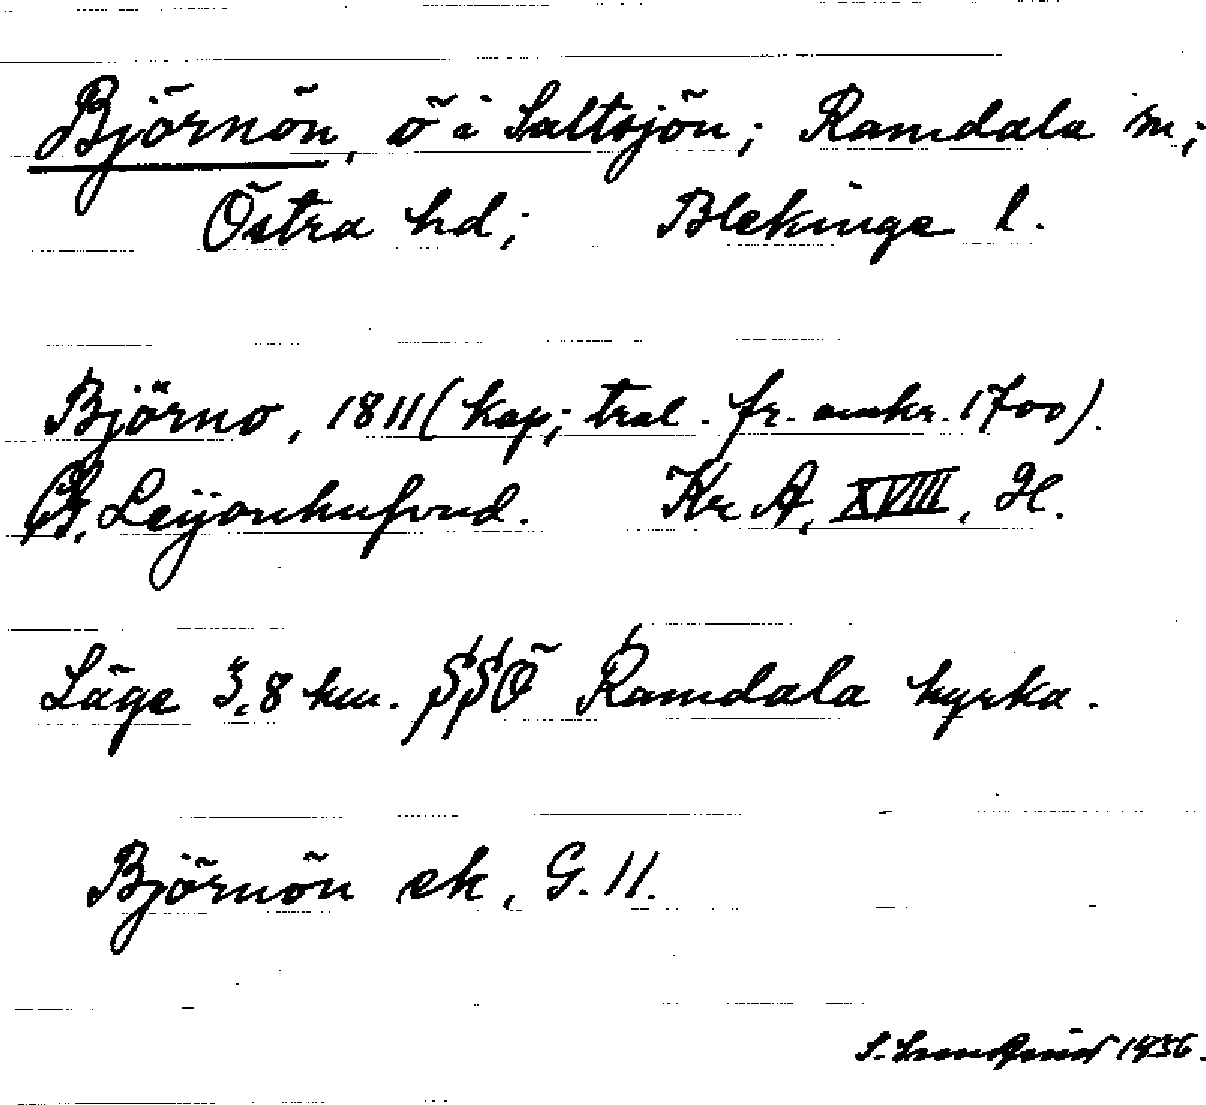 Björnön, ö i Saltsjön; Ramdala sn;
Östra hd; Blekinge l.
Björno, 1811 (kop; tral. fr. omkr. 1700).
Leijonhufvud. Kr A, XVIII, H.
Läge 3,8 km. SSÖ Ramdala kyrka.
Björnön ek, G. 11.
S. 1936.